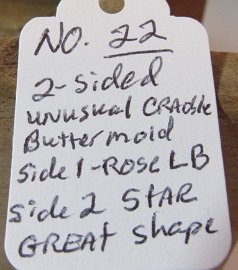 NO. 22
2-Sided
UNUSUAL CRADLE
Butter mold
Side 1-ROSE LB
Side 2 STAR
GREAT Shape